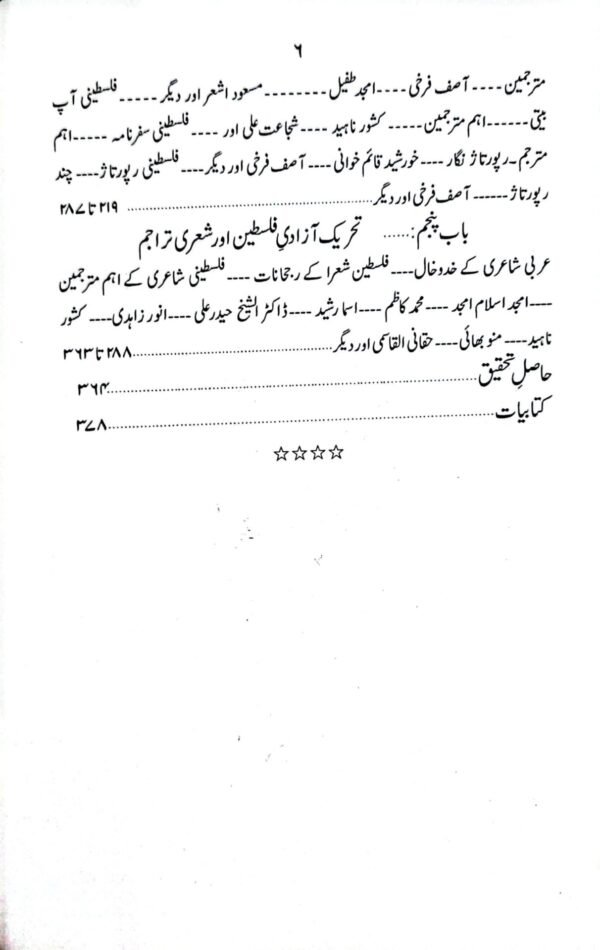 ۶
مترجمین ۔۔۔۔ آصف فرخی ۔۔۔۔امجد طفیل ۔۔۔۔۔۔۔۔ مسعود اشعر اور دیگر ۔۔۔۔۔ فلسطینی آپ
بیتی ۔۔۔۔۔۔اہم مترجمین۔۔۔۔۔ کشور ناہید ۔۔۔۔شجاعت علی اور ۔۔۔۔ فلسطینی سفرنامہ ۔۔۔۔۔اہم
مترجم۔رپورتاژ نگار ۔۔۔۔خورشید قائم خوانی ۔۔۔۔آصف فرخی اور دیگر۔۔۔۔ فلسطینی رپورتاژ۔۔۔۔ چند
رپورتاژ ۔۔۔۔۔۔ آصف فرخی اور دیگر............................................ ۲۱۹ تا ۲۸۷
باب پنجم: ...... تحریک آزادیِ فلسطین اور شعری تراجم
عربی شاعری کے خدوخال۔۔۔۔ فلسطین شعرا کے رجحانات ۔۔۔۔ فلسطینی شاعری کے اہم مترجمین
۔۔۔۔امجد اسلام امجد ۔۔۔۔محمد کاظم ۔۔۔۔اسما رشید ۔۔۔۔ڈاکٹر الشیخ حیدر علی ۔۔۔۔انور زاہدی۔۔۔۔ کشور
ناہید۔۔۔۔ منو بھائی۔۔۔۔حقانی القاسمی اور دیگر............................................۲۸۸ تا ۳۶۳
حاصلِ تحقیق............................................................۳۶۴
کتابیات............................................................۳۷۸
☆☆☆☆